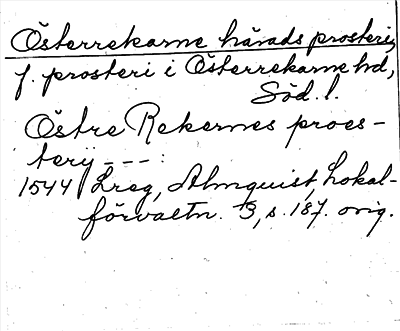 Österrekarne härads prosteri,
f. prosteri i Österrekarne hd,
Söd. l.
Östre Rekernes proes-
terij - - - :
1544 Lreg, Almquist, Lokal-
förvaltn. 3, s. 187. orig.